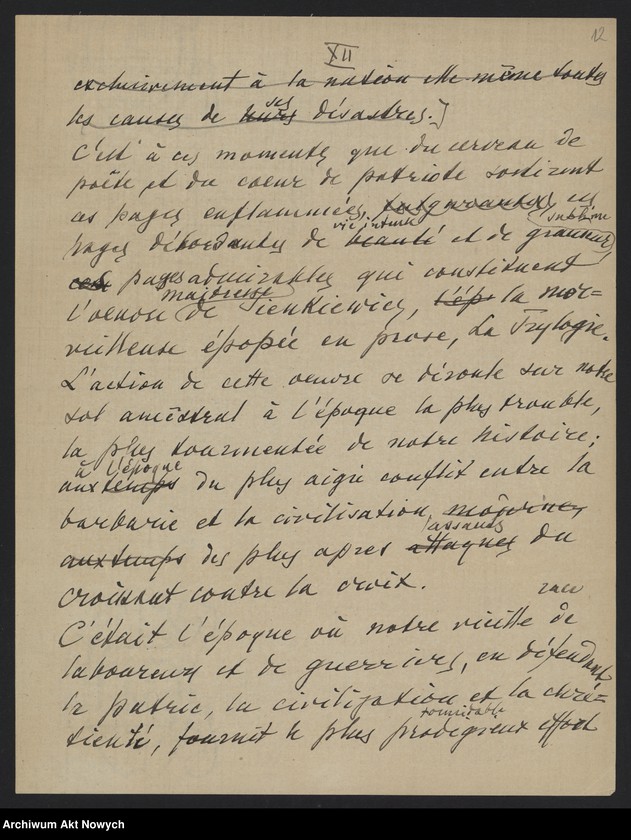 12
XII
exclusivement à la nation elle même toutes
les causes de leurs ses désastres.]
C'est à ces moments que du cerveau de
poëte et du coeur de patriote sortirent
ces pages enflammées, ces
pages débordantes de beauté vie intense et de grandeur sublime,
ces pages admirables qui constituent
l'oeuvre maîtresse de Sienkiewicz, l'ép la mer=
veilleuse épopée en prose, La Trylogie.
L'action de cette oeuvre se déroule sur notre
sol ancestral à l'époque la plus trouble,
la plus tourmentée de notre histoire;
aux temps à l'époque du plus aigu conflit entre la
barbarie et la civilisation,
aux temps des plus apres attaques assauts du
croissant contre la croix.
C'était l'époque où notre vieille race de
laboureurs et de guerriers, en défendant
la patrie, la civilization et la chré=
tienté, fournit le plus prodigieux formidable effort
Archiwum Akt Nowych